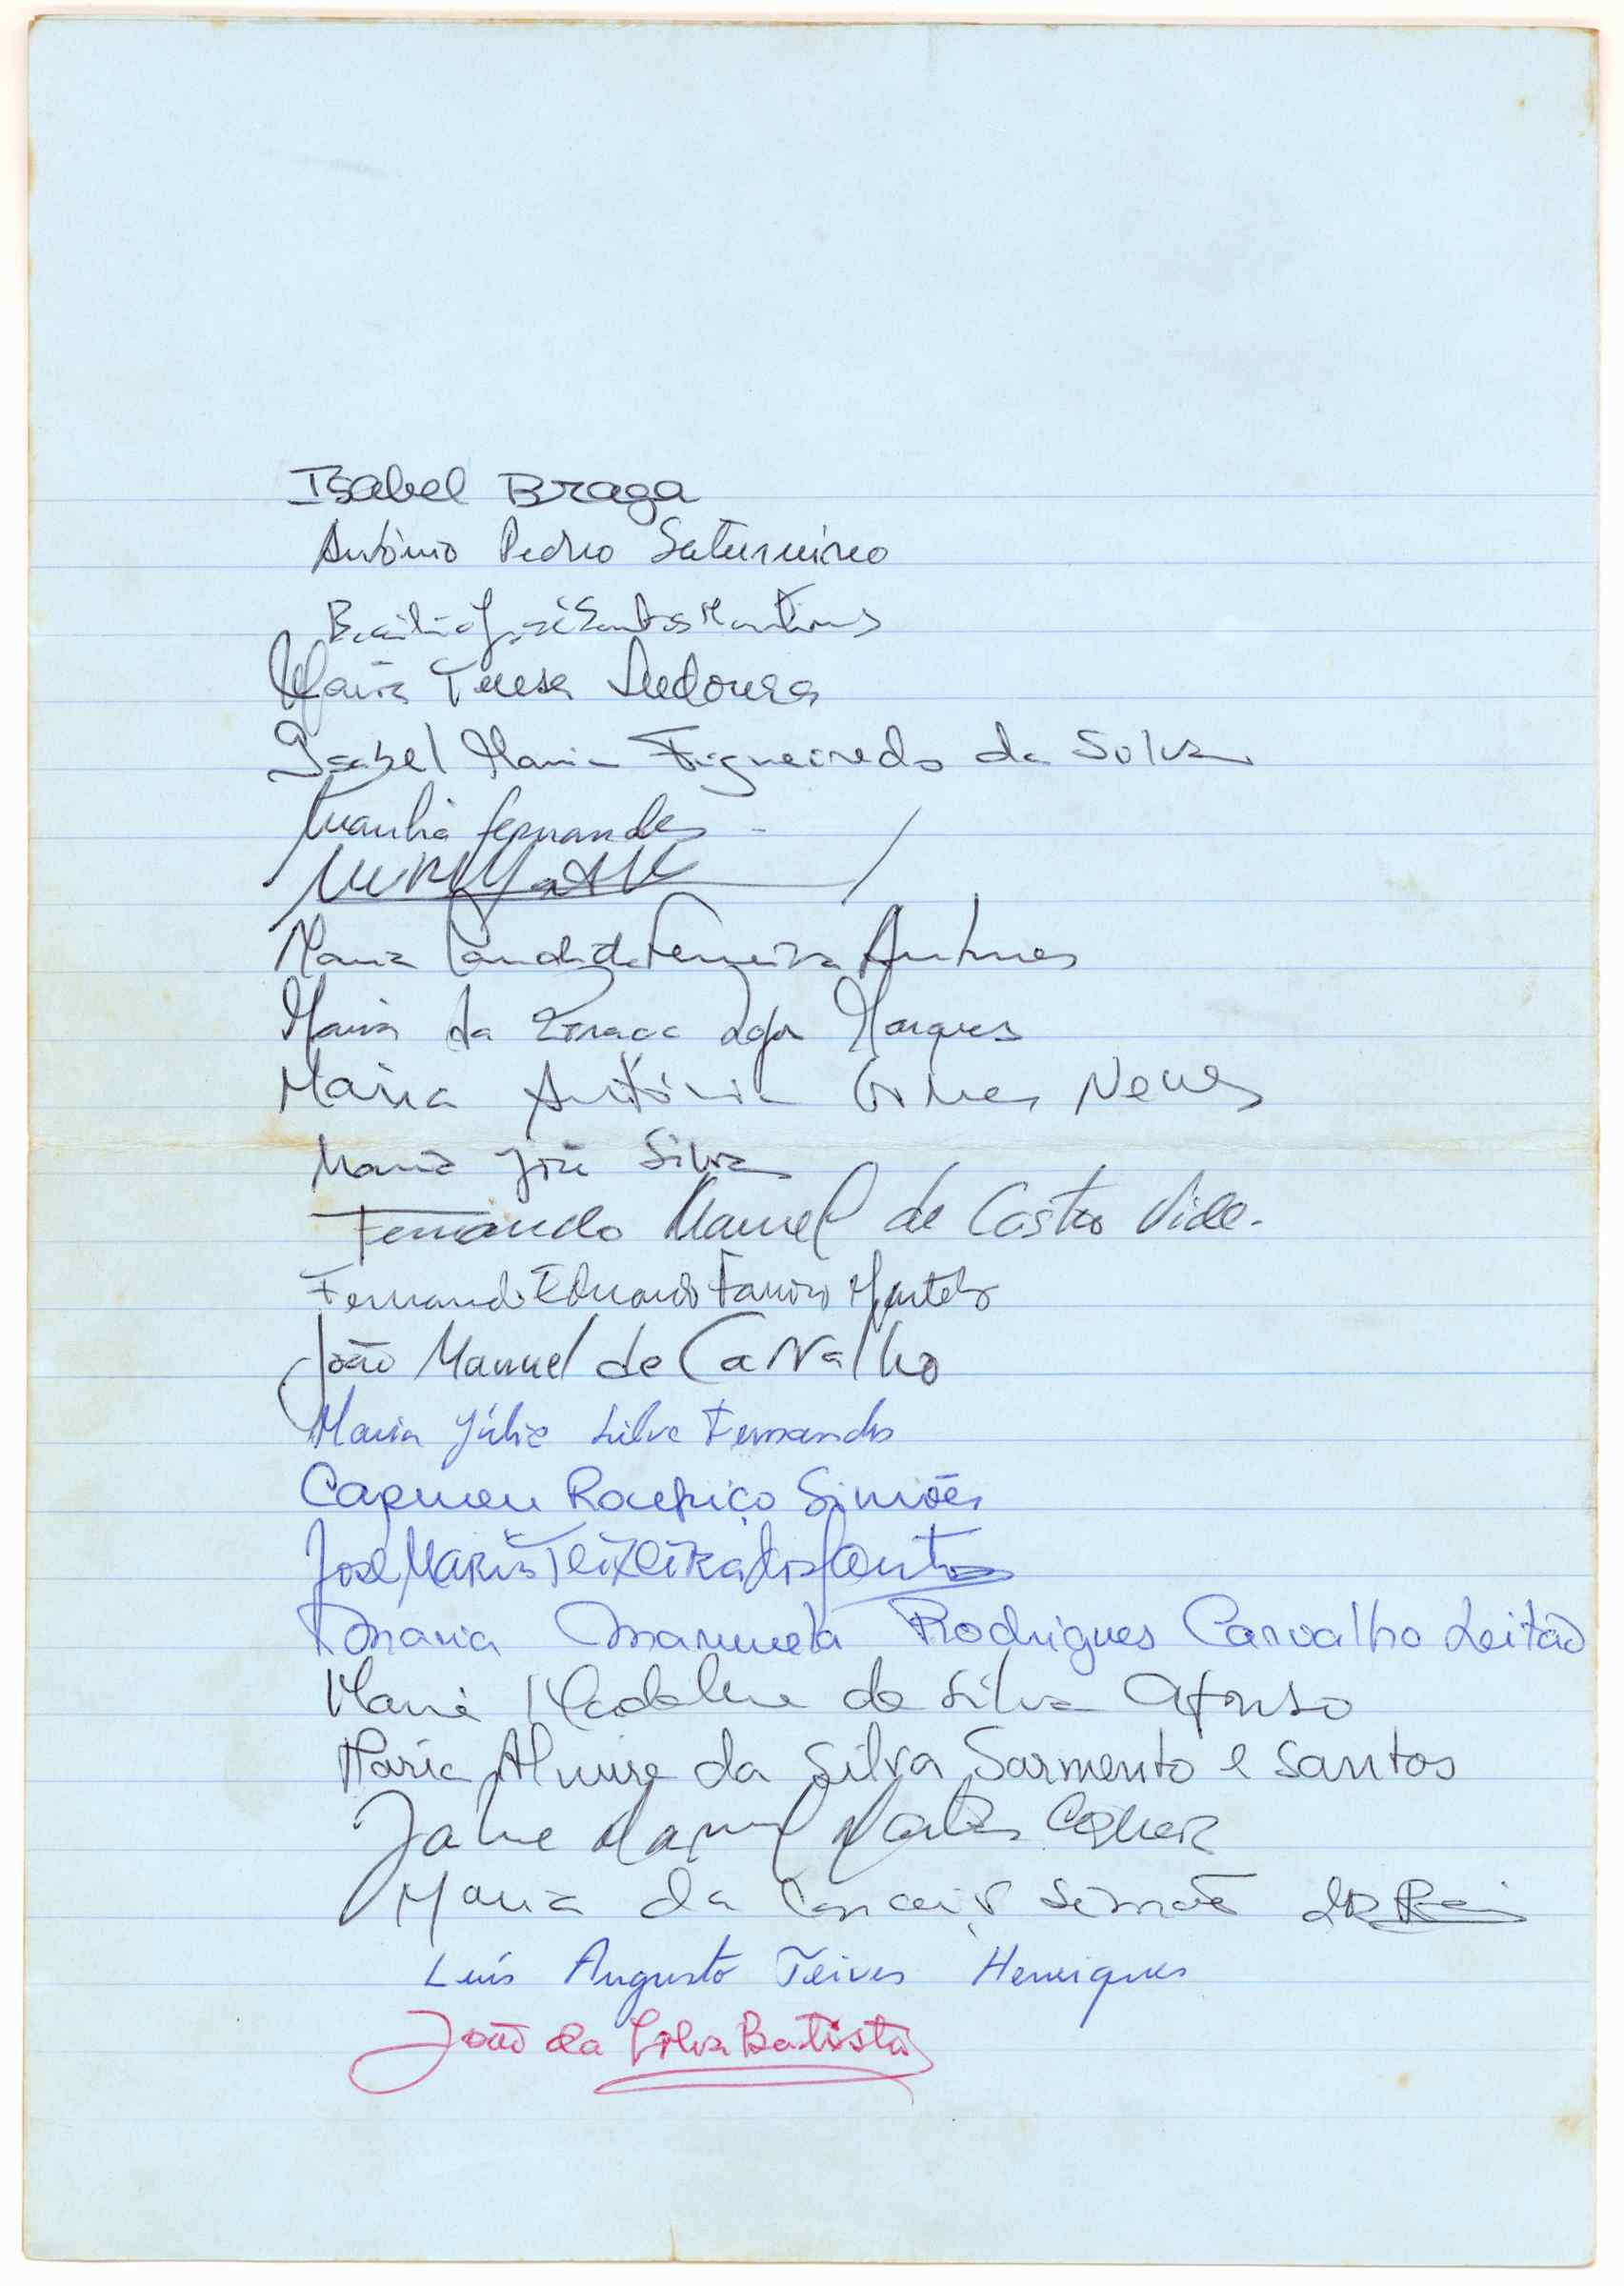 Isabel Braga
António Pedro Saturnino
Basílio José Santos Martins
Maria Teresa
Isabel Maria Figueiredo da Silva
Fernandes
Maria Candida Ferreira Antunes
Maria da Graça Marques
Maria Antónia Gomes Neves
Maria José Silva
Fernando Manuel de Castro Vide.
Fernando Eduardo Martins
João Manuel de Carvalho
Maria Júlia Silva Fernandes
Carmen Simões
José Maria Teixeira dos Santos
Maria Manuela Rodrigues Carvalho Leitão
Maria Madalena da Silva Afonso
Maria da Silva Sarmento e Santos
Jaime Manuel
Maria da Simões
Luís Augusto Teives Henriques
João da Silva Batista